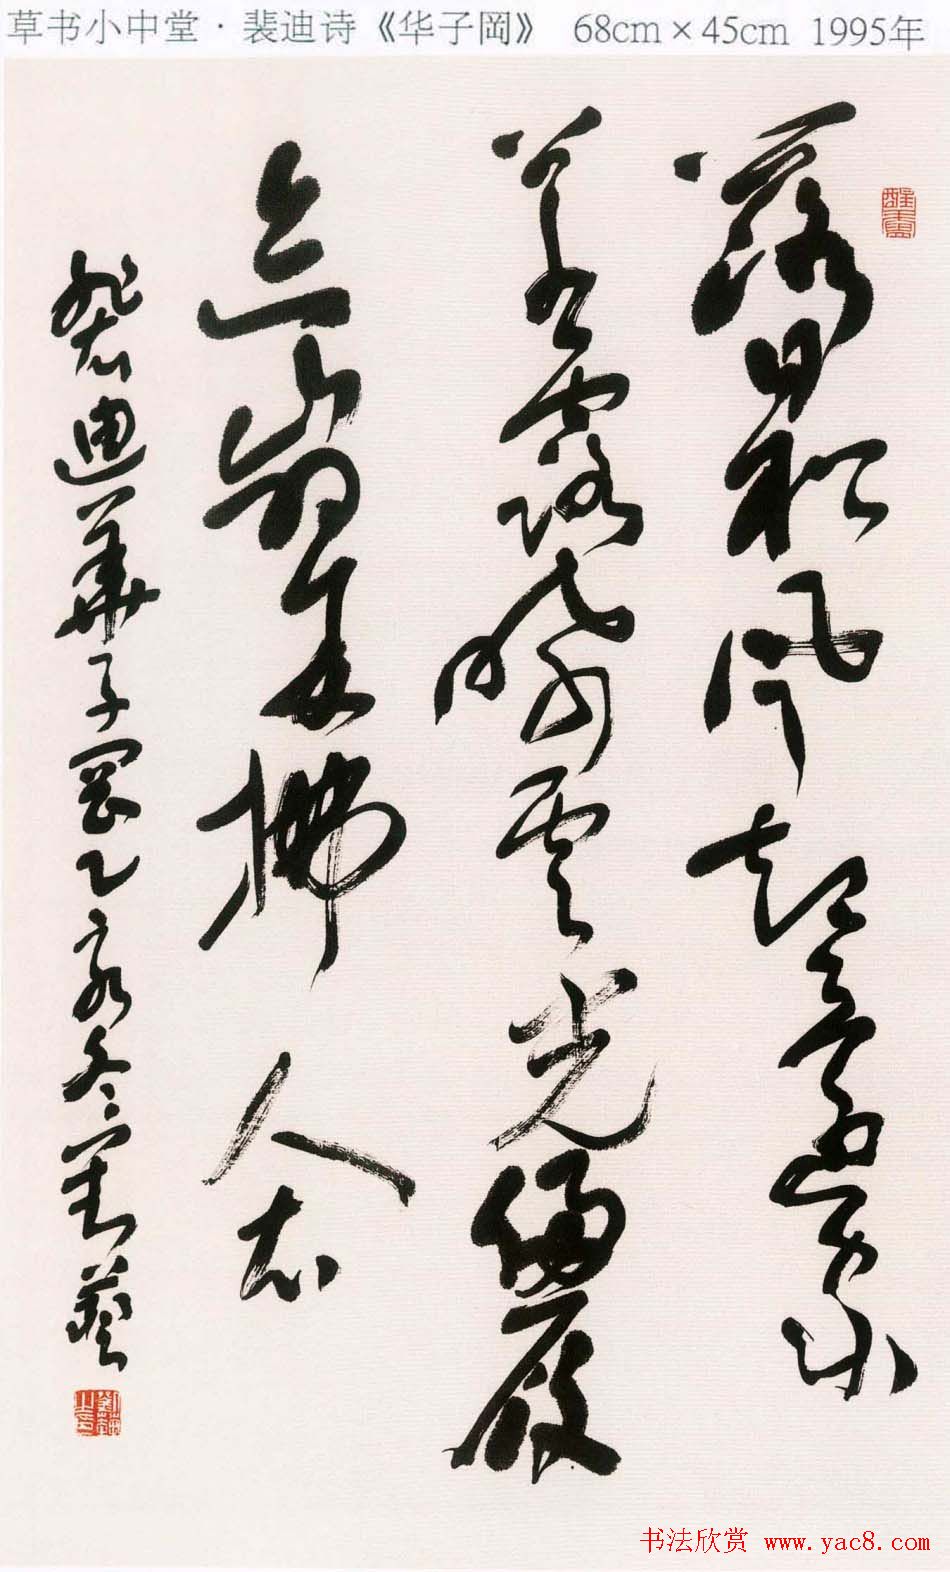 草书小中堂·裴迪诗《华子岡》 68cm×45cm 1995年
落日松風起還家
草露晞雲光侵履
迹山翠拂人衣
裴迪華子岡乙亥冬劉藝
劉藝之印
书法欣赏 www.yac8.com